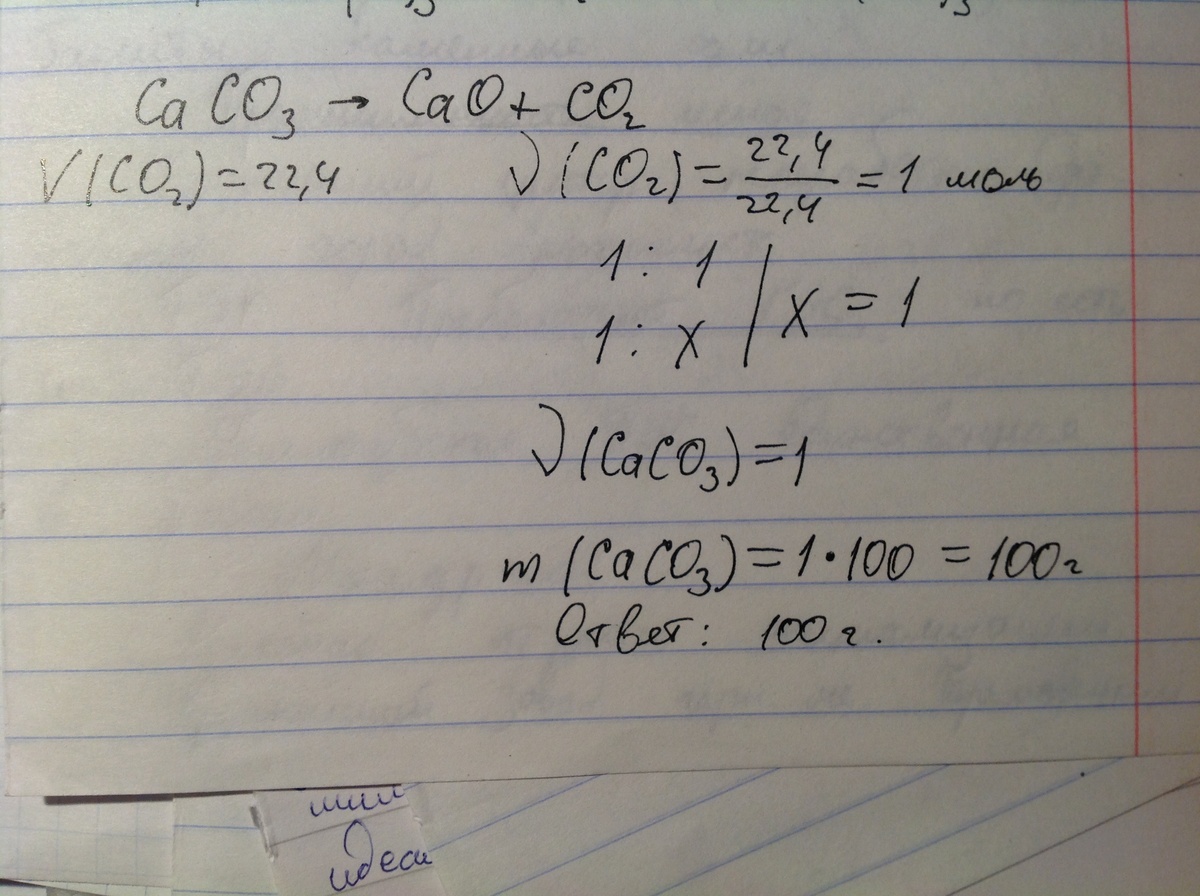 CaCO₃ → CaO + CO₂
V(CO₂) = 22,4
ν(CO₂) = 22,4/22,4 = 1 моль
1 : 1
1 : x | x = 1
ν(CaCO₃) = 1
m(CaCO₃) = 1 · 100 = 100г
Ответ: 100 г.
идеи